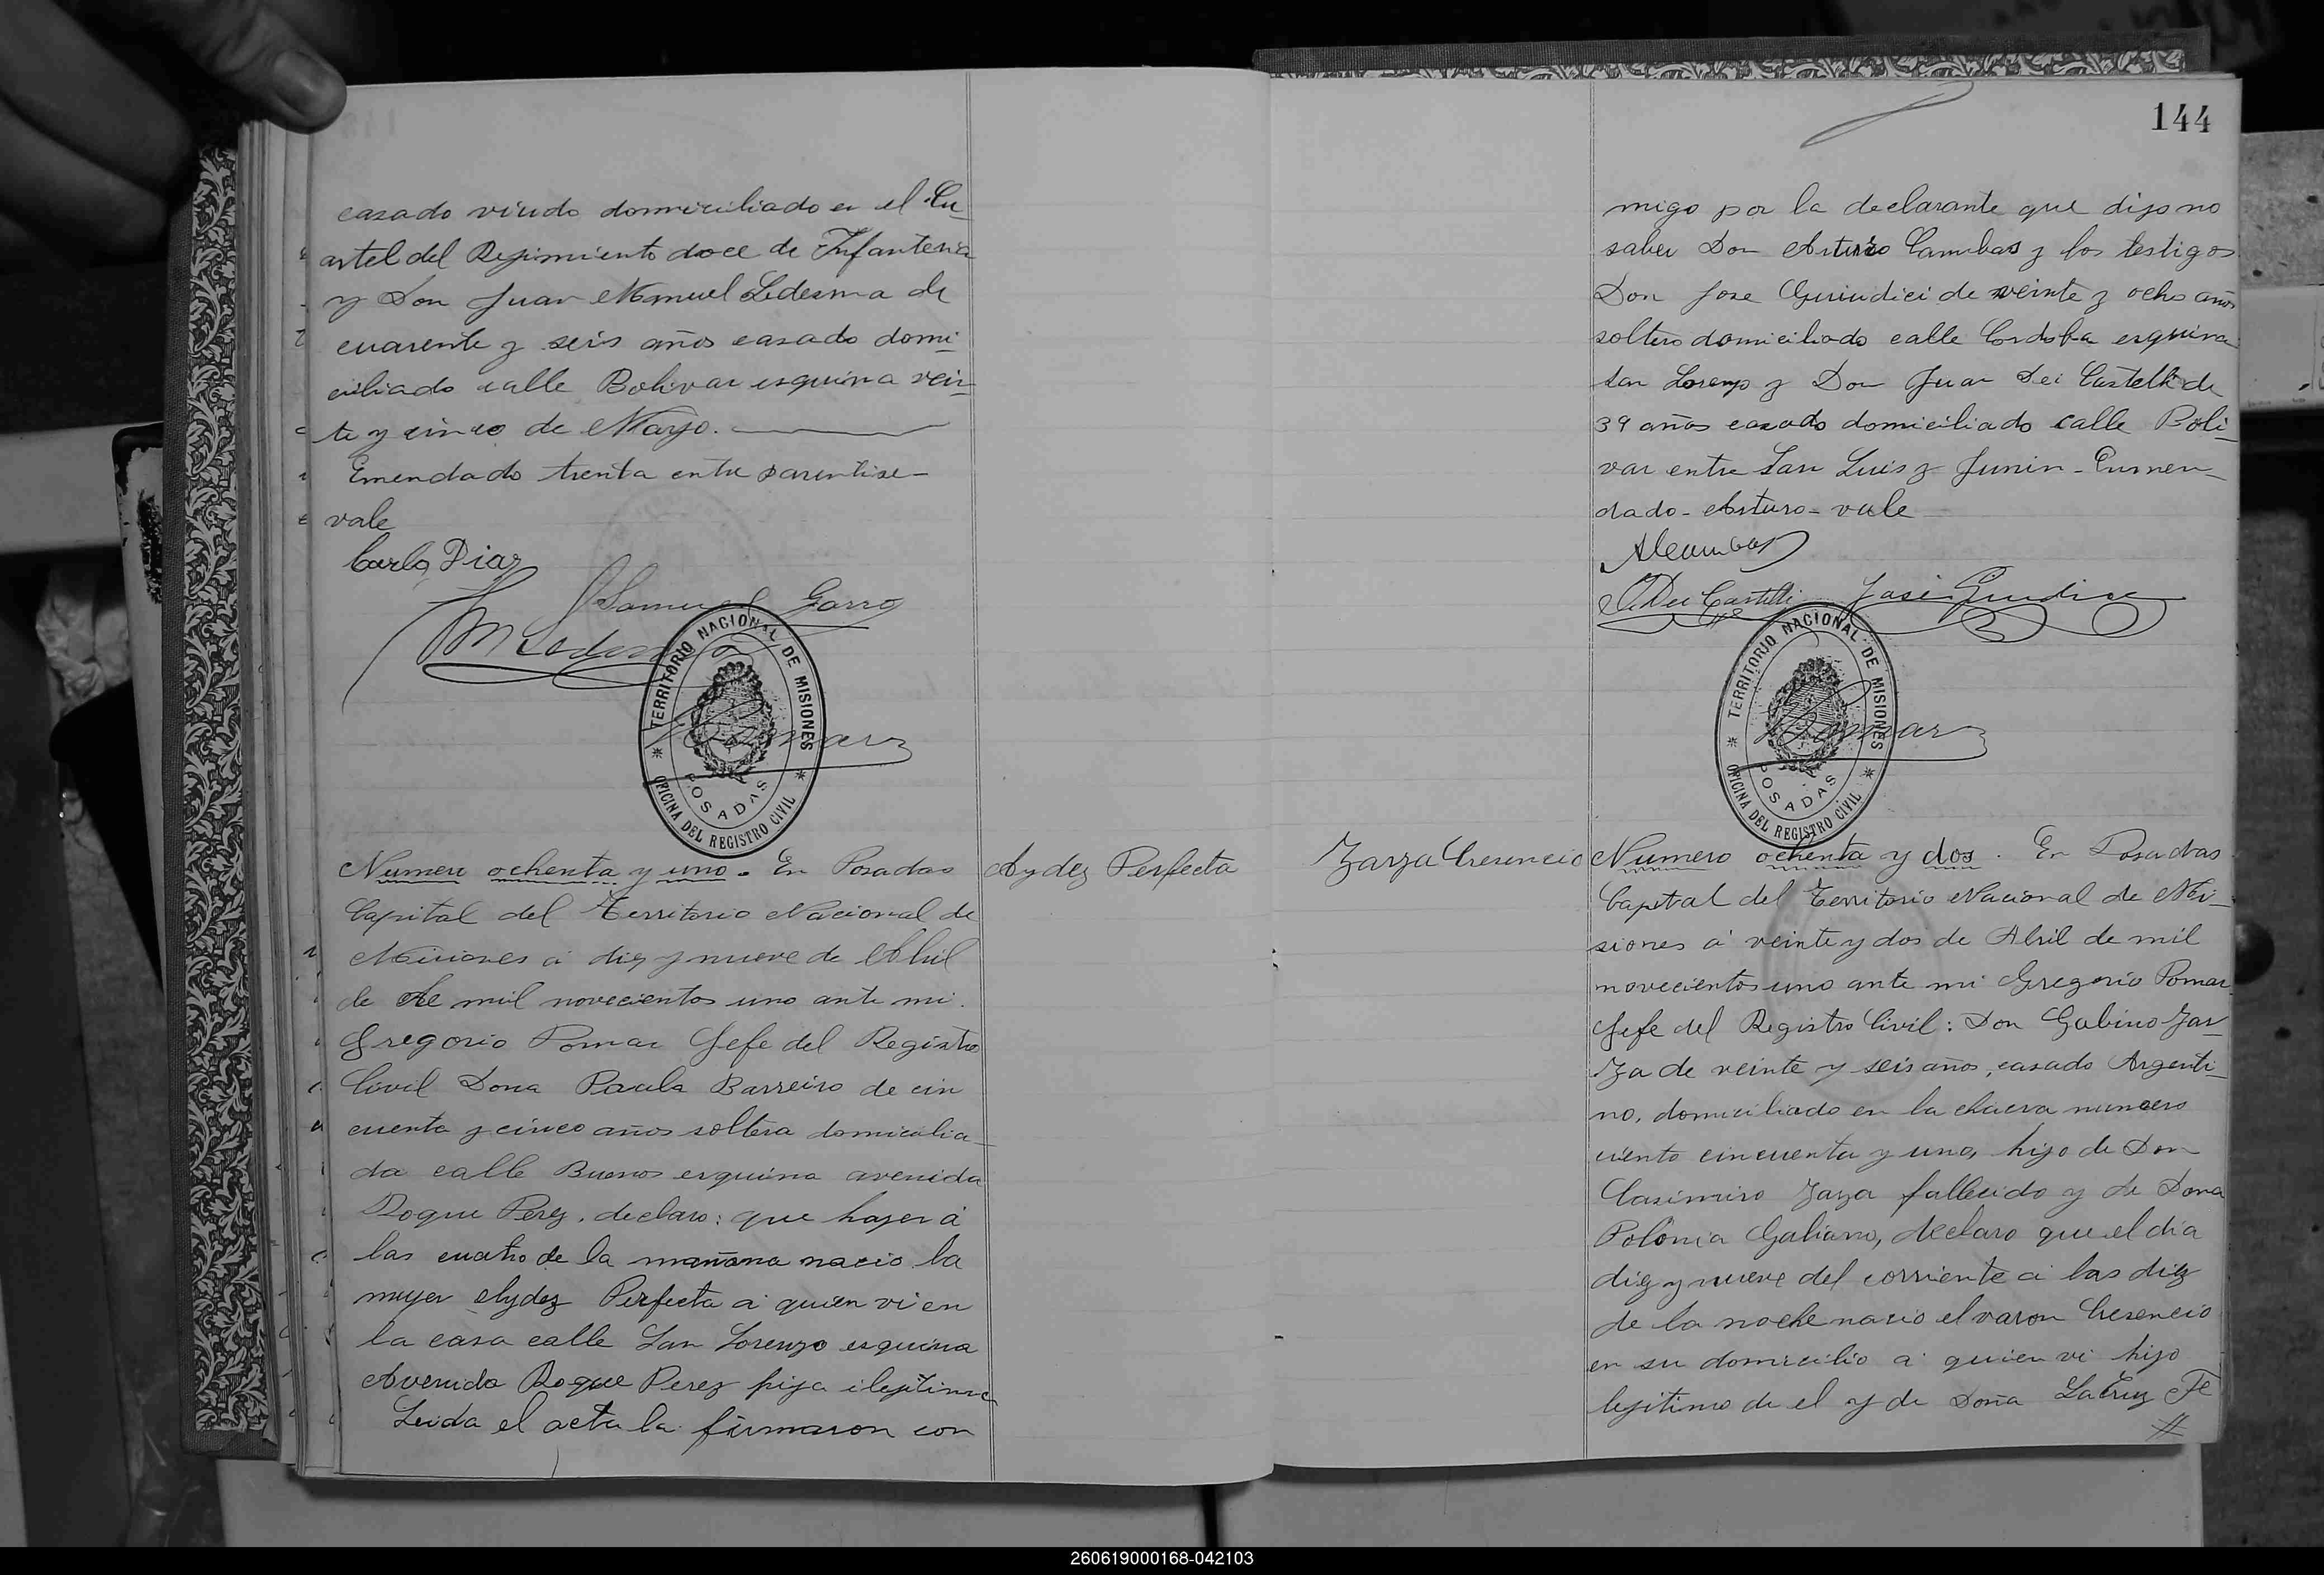 casado viudo domiciliado en el Cu_
artel del Regimiento doce de Infanteria
y Don Juan Manuel Ledesma de
cuarente y seis años casado domi_
ciliado calle Bolivar esquina vein_
te y cinco de Mayo.
Emendado trenta entre parentise_
vale
Carlos Diaz
Samuel Garro
JM Ledesma
TERRITORIO NACIONAL DE MISIONES
POSADAS
OFICINA DEL REGISTRO CIVIL
Pomar
Numero ochenta y uno. En Posadas
Aydez Perfecta
Capital del Territorio Nacional de
Misiones á diez y nueve de Abril
de de mil novecientos uno ante mi
Gregorio Pomar Jefe del Registro
Civil Dona Paula Barreiro de cin
cuenta y cinco años soltera domicilia_
da calle Buenos esquina avenida
Roque Perez. declaro: que hayer á
las cuatro de la mañana nacio la
mujer Aydez Perfecta a quien vi en
la casa calle San Lorenzo esquina
Avenida Roque Perez hija ilejitima
Leida el acta la firmaron con
144
migo por la declarante que dijo no
saber Don Arturo Cambas y los testigos
Don Jose Guiudici de veinte y ocho años
soltero domiciliado calle Cordoba esquina
San Lorenzo y Don Juan Dei Castelli de
39 años casado domiciliado calle Boli_
var entre San Luis y Junin_Enmen_
dado_Arturo_vale
ACambas
J. Dei Castelli José Giudice
TERRITORIO NACIONAL DE MISIONES
POSADAS
OFICINA DEL REGISTRO CIVIL
Pomar
Zarza Cresencio
Numero ochenta y dos. En Posadas
Capital del Territorio Nacional de Mi_
siones á veinte y dos de Abril de mil
novecientos uno ante mi Gregorio Pomar
Jefe del Registro Civil: Don Gabino Zar_
za de veinte y seis años, casado Argenti_
no, domiciliado en la chacra numero
ciento cincuenta y uno, hijo de Don
Casimiro Zarza fallecido y de Dona
Polonia Galiano, declaro que el dia
diez y nueve del corriente á las diez
de la noche nacio el varon Cresencio
en su domicilio a quien vi hijo
lejitimo de el y de Doña LaCruz Fe
//
260619000168-042103